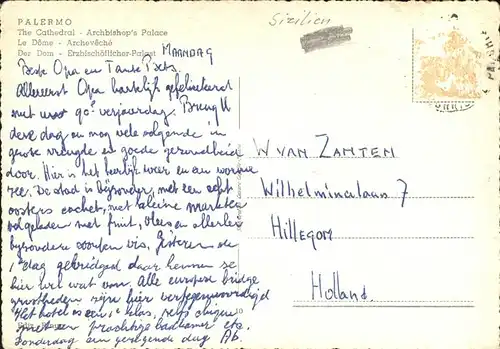 Sicilien
PALERMO
The Cathedral - Archbishop's Palace
Le Dôme - Archevêché
Der Dom - Erzbischöflicher-Palast
MAANDAG
Beste Opa en Tante Bets
Allereerst Opa hartelijk gefeliciteerd
met uw 90e verjaardag. Breng U
deze dag en nog vele volgende in
grote vreugde en goede gezondheid
door. Hier is het heerlijk weer en een warme
zee. De stad is bijzonder, met een echt
oosters cachet, met kleine markten
volgeladen met fruit, vlees en allerlei
bijzondere soorten vis. Gisteren de
1e dag gebridged daar kennen ze
hier wel wat van. Alle europese bridge
grootheden zijn hier vertegenwoordigd
Het hotel is een 1e klas,
prachtige badkamer etc.
Donderdag een dag Ab.
W VAN ZANTEN
Wilhelminalaan 7
Hillegom
Holland